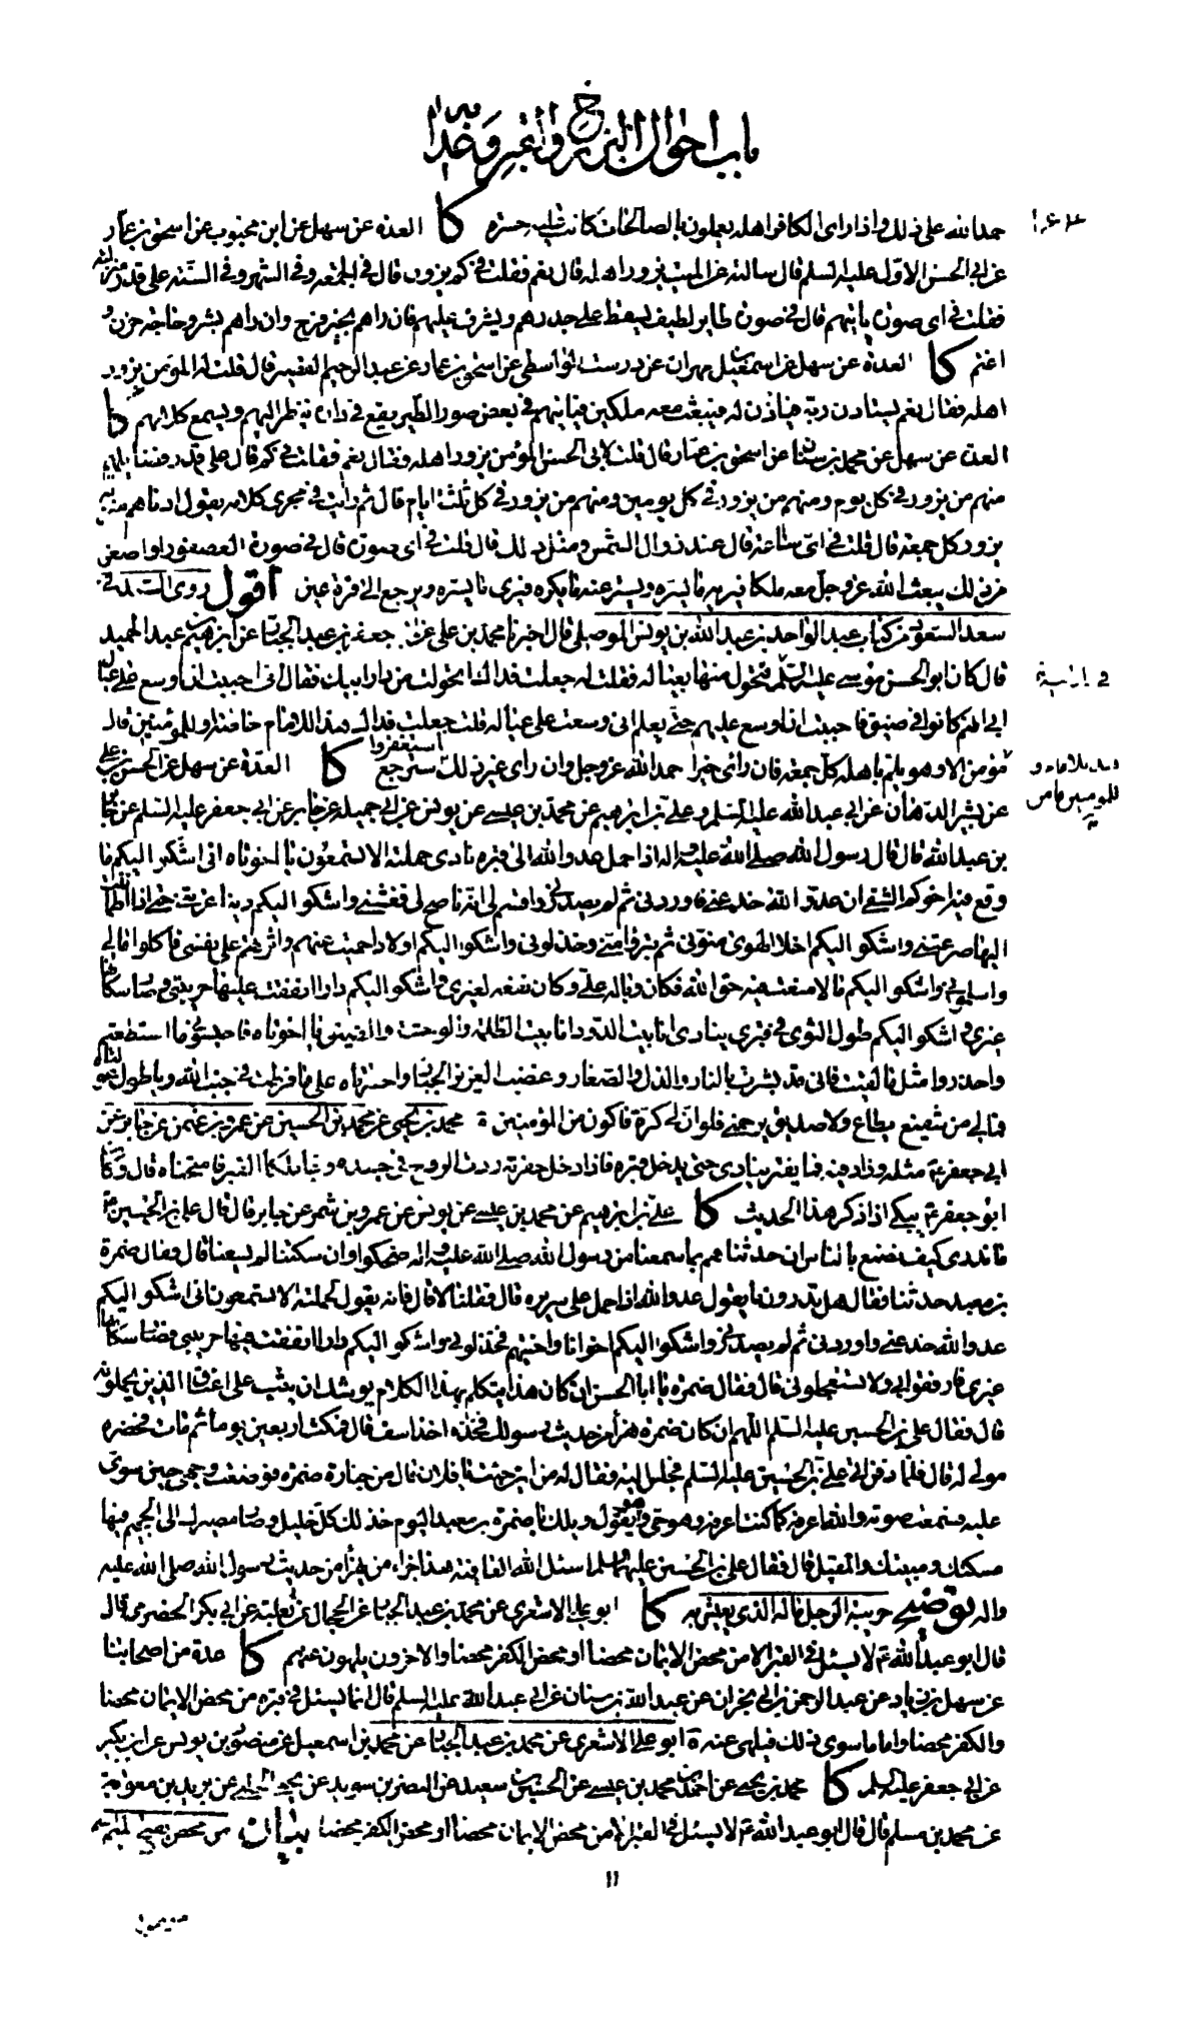 باب احوال البرزخ والقبر وعذابه
حمد الله على ذلك واذا راى الكافر اهله يعملون بالصالحات كانت عليه حسرة كا العدة عن سهل عن ابن محبوب عن اسحق بن عمار
عن ابي الحسن الاول عليه السلم قال سالته عن الميت يزور اهله قال نعم فقلت في كم يزور قال في الجمعة وفي الشهر وفي السنة على قدر منزلته
فقلت في اى صورة ياتيهم قال في صورة طاير لطيف يسقط على جدرهم ويشرف عليهم فان راهم بخير فرح وان راهم بشر وحاجة حزن و
اغتم كا العدة عن سهل عن اسمعيل بن مهران عن درست الواسطى عن اسحق بن عمار عن عبد الرحيم القصير قال قلت له المؤمن يزور
اهله فقال نعم يستاذن ربه فياذن له فيبعث معه ملكين فياتيهم في بعض صور الطير يقع في داره ينظر اليهم ويسمع كلامهم كا
العدة عن سهل عن محمد بن سنان عن اسحق بن عمار قال قلت لابى الحسن المؤمن يزور اهله فقال نعم فقلت في كم قال على قدر فضائلهم
منهم من يزور في كل يوم ومنهم من يزور في كل يومين ومنهم من يزور في كل ثلثة ايام قال ثم رايت في مجرى كلامه يقول ادناهم منزلة
يزور كل جمعة قال قلت في اى ساعة قال عند زوال الشمس ومثل ذلك قال قلت في اى صورة قال في صورة العصفور او اصغر
من ذلك يبعث الله عز وجل معه ملكا فيريه ما يسره ويستر عنه ما يكره فيرى ما يسره ويرجع الى قرة عين اقول روى السيد في
سعد السعود من كتاب عبد الواحد بن عبد الله بن يونس الموصلى قال اخبرنا محمد بن على عن جعفر بن عبد الجبار عن ابرهيم بن عبد الحميد
قال كان ابو الحسن موسى عليه السلم تحول منها بعياله فقلت له جعلت فداك اتحولت من دار ابيك فقال انى احببت ان اوسع على عيال
ابي انهم كانوا في ضيق فاحببت ان اوسع عليهم حتى يعلم انى وسعت على عياله قلت جعلت فداك هذا للامام خاصة او للمؤمنين قال
مؤمن الا وهو يلم باهله كل جمعة فان راى خيرا حمد الله عز وجل وان راى غير ذلك استغفر واسترجع كا العدة عن سهل عن الحسن بن على
عن بشير الدهان عن ابي عبد الله عليه السلم وعلى بن ابرهيم عن محمد بن عيسى عن يونس عن ابي جميلة عن جابر عن ابي جعفر عليه السلم عن جابر
بن عبد الله قال قال رسول الله صلى الله عليه واله اذا حمل عدو الله الى قبره نادى حملته الا تسمعون يا اخوتاه انى اشكو اليكم ما
وقع فيه اخوكم الشقى ان عدو الله خدعنى فاوردنى ثم لم يصدرنى واقسم لى انه ناصح لى فغشنى واشكو اليكم دنيا غرتنى حتى اذا اطماننت
اليها صرعتنى واشكو اليكم اخلاء الهوى منونى ثم تبرؤا منى وخذلونى واشكو اليكم اولادا حميت عنهم واثرتهم على نفسى فاكلوا مالى
واسلمونى واشكو اليكم مالا منعت منه حق الله فكان وباله على وكان نفعه لغيرى واشكو اليكم دارا انفقت عليها حريبتى وصار سكانها
غيرى واشكو اليكم طول الثوى في قبرى ينادى انا بيت الدود انا بيت الظلمة والوحشة والضيق يا اخوتاه فاحبسونى ما استطعتم
واحذروا مثل ما لقيت فانى قد بشرت بالنار والذل والصغار وغضب العزيز الجبار واحسرتاه على ما فرطت في جنب الله ويا طول عولتاه
فمالى من شفيع يطاع ولا صديق يرحمنى فلو ان لى كرة فاكون من المؤمنين محمد بن يحيى عن محمد بن الحسين عن عمرو بن عثمن عن جابر عن
ابى جعفر ع مثله وزاد فيه فما يفتر ينادى حتى يدخل قبره فاذا دخل حفرته ردت الروح في جسده وجاءه ملكا القبر فامتحناه قال وكان
ابو جعفر ع يبكى اذا ذكر هذا الحديث كا على بن ابرهيم عن محمد بن عيسى عن يونس عن عمرو بن شمر عن جابر قال قال على بن الحسين ع
ما ندرى كيف نصنع بالناس ان حدثناهم بما سمعنا من رسول الله صلى الله عليه واله ضحكوا وان سكتنا لم يسعنا قال فقال ضمرة
بن معبد حدثنا فقال هل تدرون ما يقول عدو الله اذا حمل على سريره قال فقلنا لا قال فانه يقول لحملته الا تسمعون انى اشكو اليكم
عدو الله خدعنى واوردنى ثم لم يصدرنى واشكو اليكم اخوانا واخيتهم فخذلونى واشكو اليكم دارا انفقت فيها حريبتى فصار سكانها
غيرى فارفقوا بى ولا تستعجلونى قال فقال ضمرة يا ابا الحسن ان كان هذا يتكلم بهذا الكلام يوشك ان يثب على اعناق الذين يحملونه
قال فقال على بن الحسين عليه السلم اللهم ان كان ضمرة هزأ من حديث رسولك فخذه اخذ اسف قال فمكث اربعين يوما ثم مات فحضره
مولى له قال فلما دفن اتى على بن الحسين عليه السلم فجلس اليه فقال له من اين جئت يا فلان قال من جنازة ضمرة فوضعت وجهى حين سوى
عليه فسمعت صوته والله اعرفه كما كنت اعرفه وهو حى وهو يقول ويلك يا ضمرة بن معبد اليوم خذلك كل خليل وصار مصيرك الى الجحيم فيها
مسكنك ومبيتك والمقيل قال فقال على بن الحسين عليهما السلم اسئل الله العافية هذا جزاء من يهزأ من حديث رسول الله صلى الله عليه
واله توضيح حريبة الرجل ماله الذى يعيش به كا ابو على الاشعرى عن محمد بن عبد الجبار عن الحجال عن ثعلبة عن ابى بكر الحضرمى قال
قال ابو عبد الله ع لا يسئل في القبر الا من محض الايمان محضا او محض الكفر محضا والاخرون يلهون عنهم كا عدة من اصحابنا
عن سهل بن زياد عن عبد الرحمن بن ابى نجران عن عبد الله بن سنان عن ابى عبد الله عليه السلم قال انما يسئل في قبره من محض الايمان محضا
والكفر محضا واما ما سوى ذلك فيلهى عنه ابو على الاشعرى عن محمد بن عبد الجبار عن محمد بن اسمعيل عن منصور بن يونس عن ابن بكير
عن ابى جعفر عليه السلم كا محمد بن يحيى عن احمد بن محمد بن عيسى عن الحسين بن سعيد عن النضر بن سويد عن يحيى الحلبى عن بريد بن معوية
عن محمد بن مسلم قال قال ابو عبد الله ع لا يسئل في القبر الا من محض الايمان محضا او محض الكفر محضا بيان من محض بفتح الميم
١١